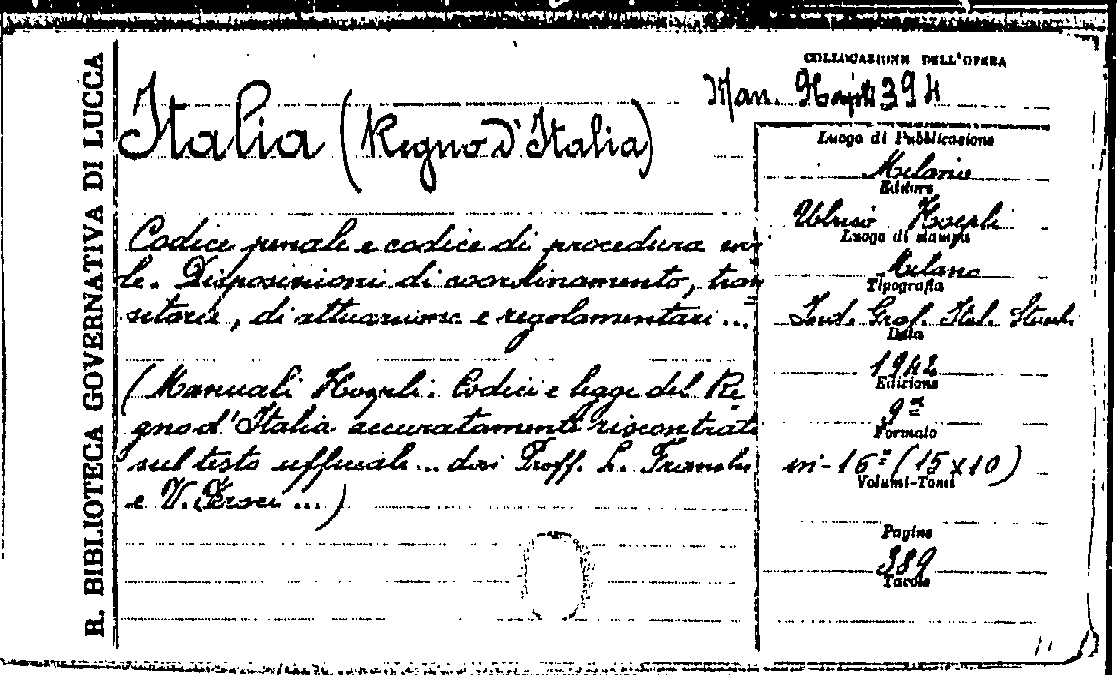 R. BIBLIOTECA GOVERNATIVA DI LUCCA
COLLOCAZIONE DELL'OPERA
Man. Hoepli 394
Italia (Regno d'Italia)
Codice penale e codice di procedura
le. Disposizioni di coordinamento, tran
sitorie, di attuazione e regolamentari ...
(Manuali Hoepli. Codici e legge del Re
gno d'Italia accuratamente riscontrati
sul testo ufficiale ... dai Proff. L. Franchi
e V. Feroci ...)
Luogo di Pubblicazione
Milano
Editore
Ulrico Hoepli
Luogo di stampa
Milano
Tipografia
Ind. Graf. Ital. Stucchi
Data
1942
Edizione
9ª
Formato
in-16° (15x10)
Volumi-Tomi
Pagine
389
Tavole